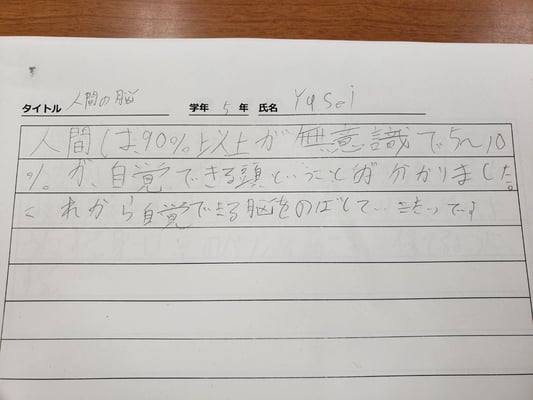 タイトル 人間の脳 学年 5 年 氏名 Yusei
人間は90%以上が無意識で5〜10
%が、自覚できる頭ということが分かりました。
これから自覚できる脳をのばして